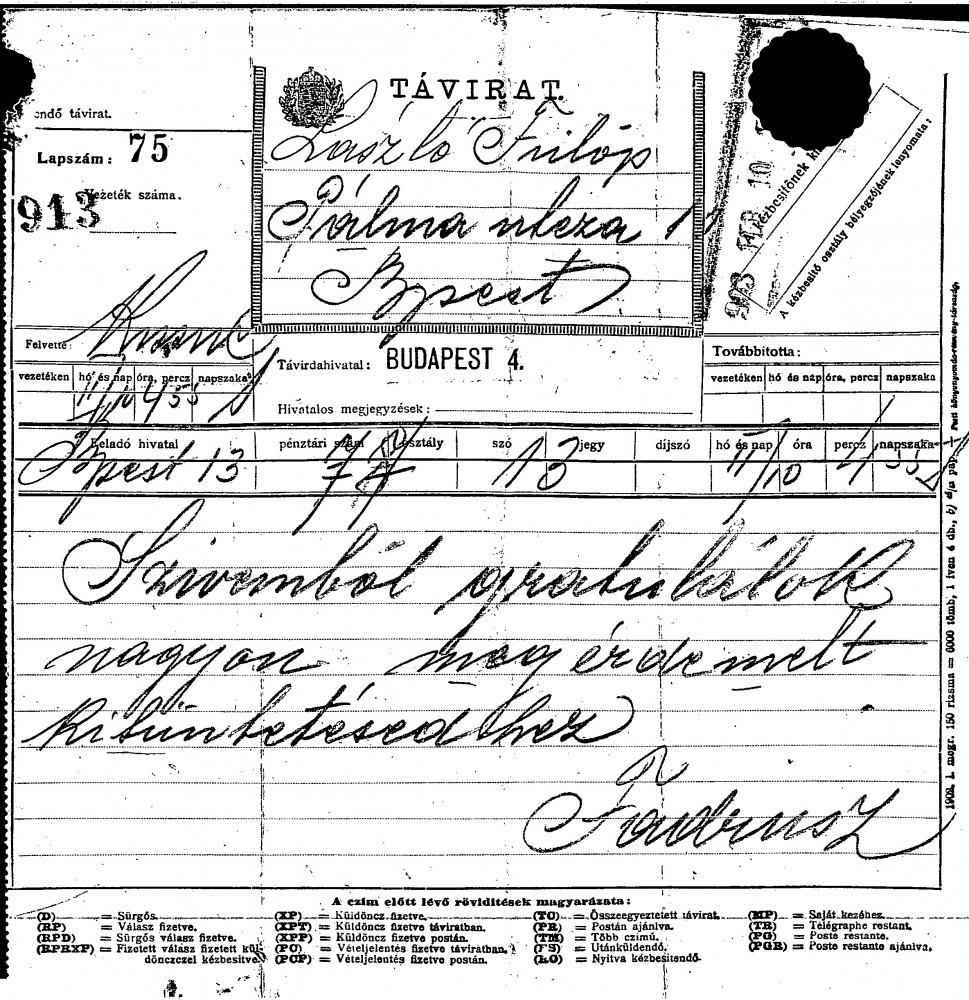 TÁVIRAT.
endő távirat.
Lapszám: 75
Vezeték száma.
913
László Fülöp
Pálma utcza
Bpest
903 FEB 10
A kézbesitő osztály bélyegzőjének lenyomata:
Felvette:
Távirdahivatal: BUDAPEST 4.
Továbbitotta:
vezetéken hó és nap óra, percz napszaka
vezetéken hó és nap óra, percz napszaka
II/10 4 55
Hivatalos megjegyzések:
Feladó hivatal pénztári szám osztály szó jegy díjszó hó és nap óra percz napszaka
Bpest 13 77 13 II/10 4 55
Szivemből gratulálok
nagyon megérdemelt
kitüntetésedhez
Fadrusz
A czím előtt lévő rövidítések magyarázata:
(D) = Sürgős.
(RP) = Válasz fizetve.
(RPD) = Sürgős válasz fizetve.
(RPRXP) = Fizetett válasz fizetett kül-
dönczczel kézbesitve.
(XP) = Küldöncz fizetve.
(XPT) = Küldöncz fizetve táviratban.
(XPP) = Küldöncz fizetve postán.
(PC) = Vételjelentés fizetve táviratban.
(PCP) = Vételjelentés fizetve postán.
(TC) = Összeegyeztetett távirat.
(PR) = Postán ajánlva.
(TM) = Több czímű.
(FS) = Utánküldendő.
(LO) = Nyitva kézbesitendő.
(MP) = Saját kezéhez.
(TR) = Télégraphe restant.
(PG) = Poste restante.
(PGR) = Poste restante ajánlva.